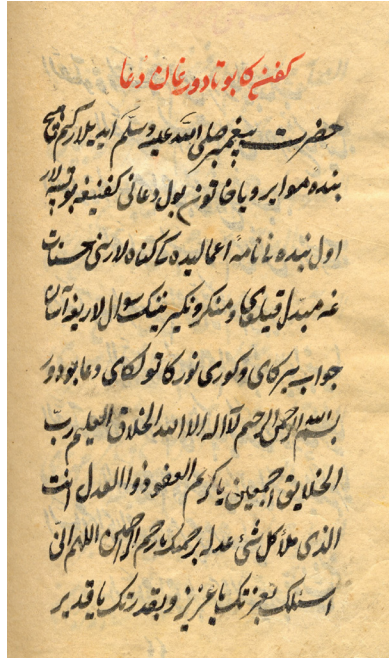 كفن كا بوتادورغان دعا
حضرت پيغمبر صلى الله عليه وسلم ايديلار كيم قايسى
بنده مو اير و يا خاتون بول دعانى كفنيغه بوتيسه لار
اول بنده نانامهٔ اعماليده كى كناه لارىنى حسنات
غه مبدل قيلغاى و منكر و نكير نينك سوال لاريغه آسان
جواب بيركاى و كورى نور كا تولكاى دعا بودور
بسم الله الرحمن الرحيم لا اله الا الله الخلاق العليم رب
الخلايق اجمعين يا كريم العفو ذوا العدل انت
الذى ملا كل شئ عدله برحمتك يا رحم الرحمين اللهم انى
اسئلك بعزتك يا عزيز و بقدرتك يا قدير